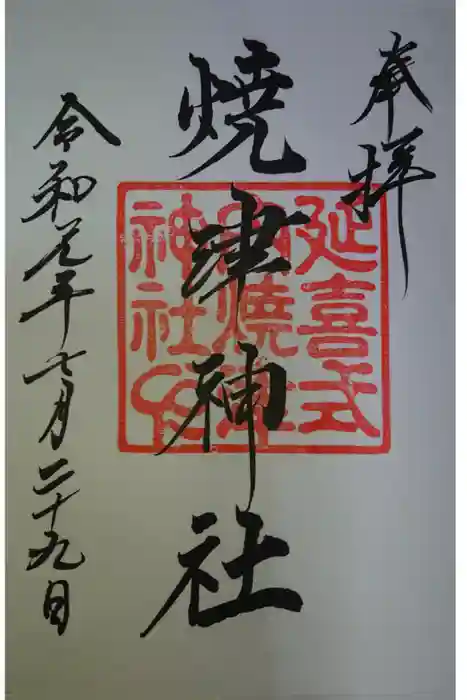 奉拝
焼津神社
令和元年七月二十九日
延喜式
神社